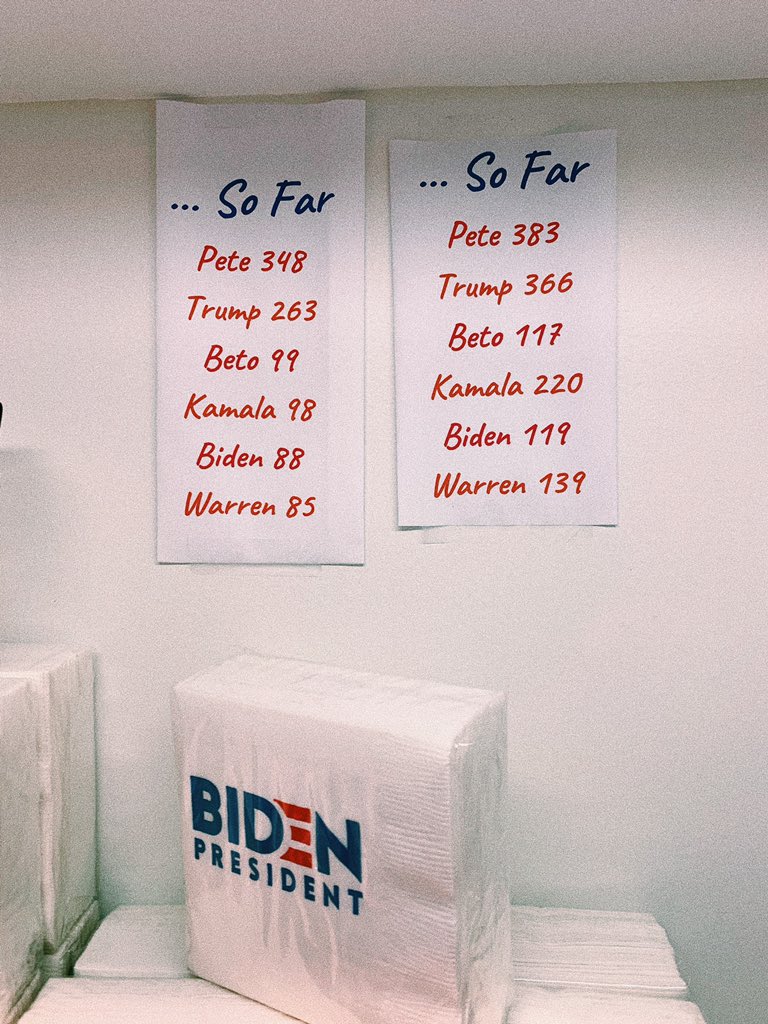 ... So Far
Pete 348
Trump 263
Beto 99
Kamala 98
Biden 88
Warren 85
... So Far
Pete 383
Trump 366
Beto 117
Kamala 220
Biden 119
Warren 139
BIDEN
PRESIDENT